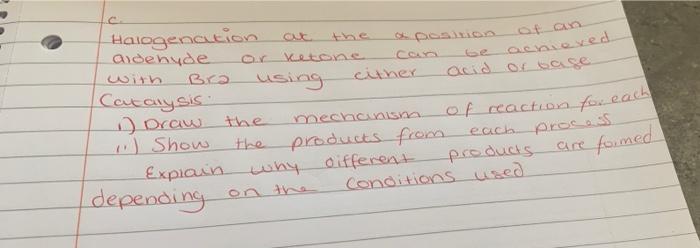 C.
Halogenation at the α position of an
aldehyde or ketone can be achieved
with Br2 using either acid or base
Catalysis.
i) Draw the mechanism of reaction for each
ii) Show the products from each process
Explain why different products are formed
depending on the conditions used